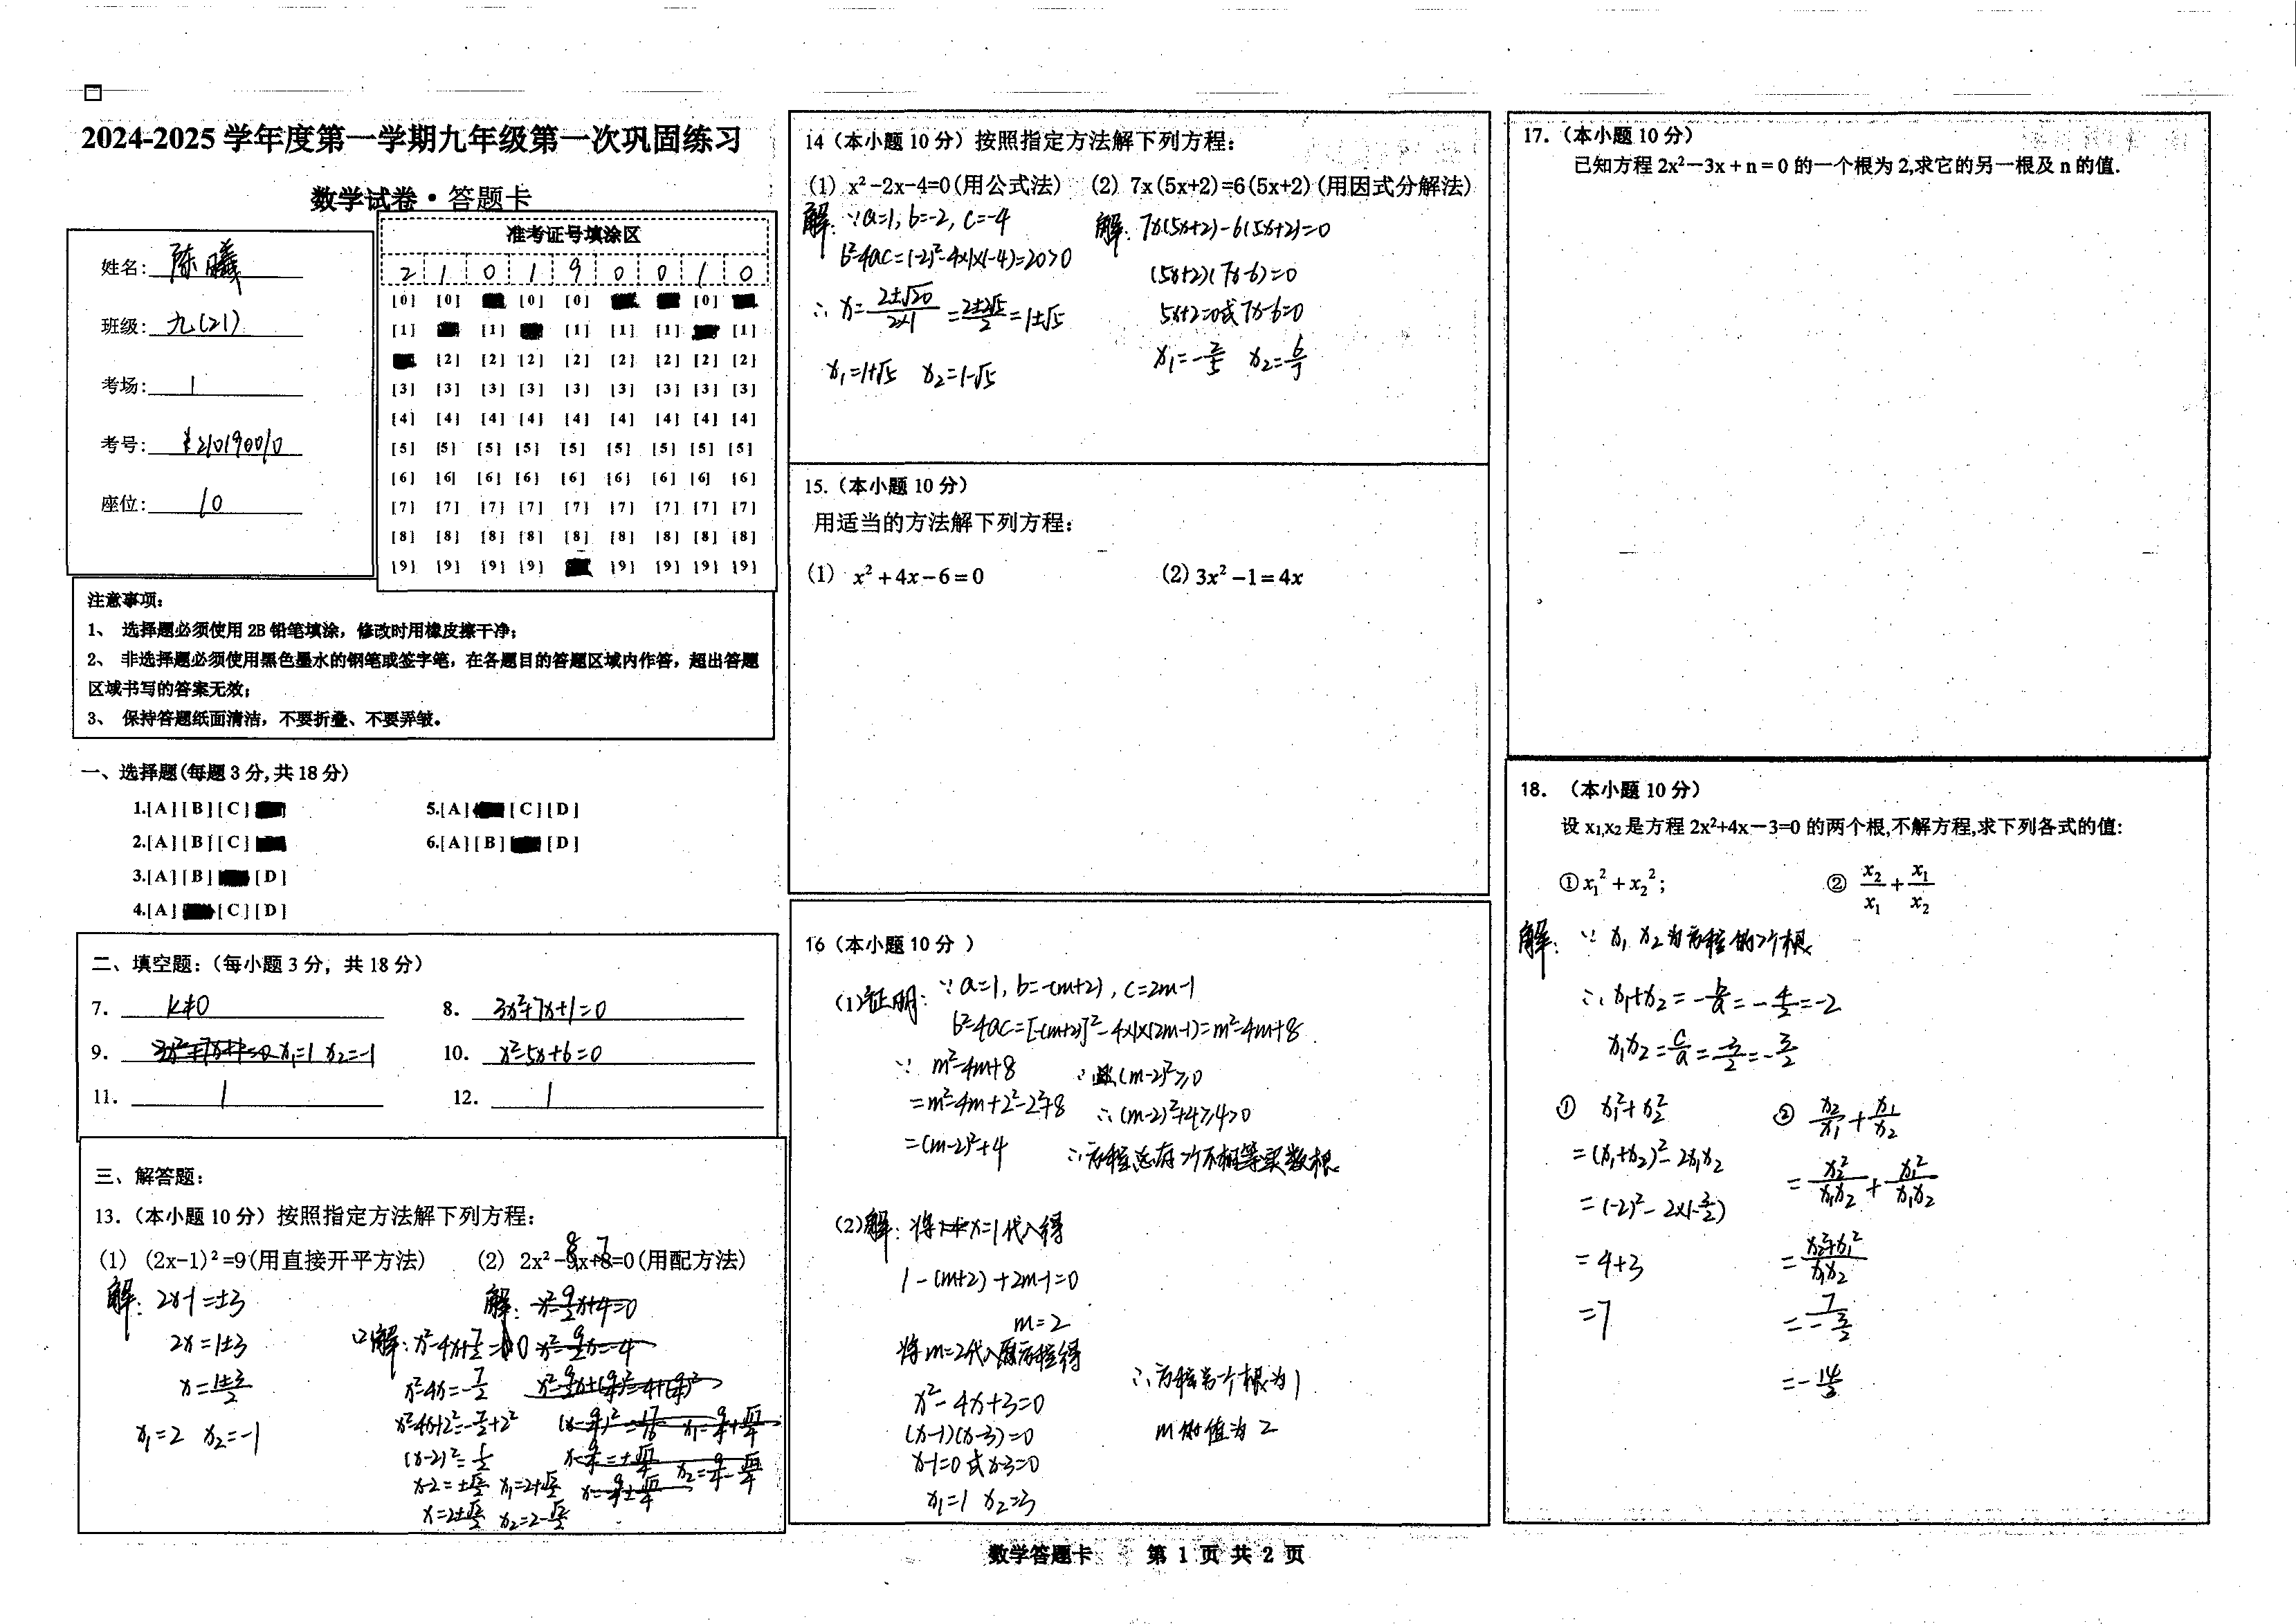 2024-2025 学年度第一学期九年级第一次巩固练习
数学试卷·答题卡
姓名: 陈曦
班级: 九(21)
考场: 1
考号: 210190010
座位: 10
准考证号填涂区
2 1 0 1 9 0 0 1 0
[0] [0] [0] [0] [0]
[1] [1] [1] [1] [1] [1]
[2] [2] [2] [2] [2] [2] [2] [2]
[3] [3] [3] [3] [3] [3] [3] [3] [3]
[4] [4] [4] [4] [4] [4] [4] [4] [4]
[5] [5] [5] [5] [5] [5] [5] [5] [5]
[6] [6] [6] [6] [6] [6] [6] [6] [6]
[7] [7] [7] [7] [7] [7] [7] [7] [7]
[8] [8] [8] [8] [8] [8] [8] [8] [8]
[9] [9] [9] [9] [9] [9] [9] [9]
注意事项:
1、 选择题必须使用 2B 铅笔填涂，修改时用橡皮擦干净;
2、 非选择题必须使用黑色墨水的钢笔或签字笔，在各题目的答题区域内作答，超出答题
区域书写的答案无效;
3、 保持答题纸面清洁，不要折叠、不要弄皱。
一、选择题(每题 3 分,共 18 分)
1.[A][B][C]
5.[A] [C][D]
2.[A][B][C]
6.[A][B] [D]
3.[A][B] [D]
4.[A] [C][D]
二、填空题:(每小题 3 分，共 18 分)
7. k≠0
8. 3x²+7x+1=0
9. x₁=1 x₂=-1
10. x²-5x+6=0
11. 1
12. 1
三、解答题:
13.(本小题 10 分)按照指定方法解下列方程:
(1) (2x-1)²=9(用直接开平方法)
解: 2x-1=±3
2x=1±3
x=(1±3)/2
x₁=2 x₂=-1
(2) 2x²-8x+7=0(用配方法)
解:
(2)解: x²-4x+7/2=0
x²-4x=-7/2
x²-4x+2²=-7/2+2²
(x-2)²=1/2
x-2=±√2/2 x₁=2+√2/2
x=2±√2/2 x₂=2-√2/2
14(本小题 10 分)按照指定方法解下列方程:
(1) x²-2x-4=0(用公式法) (2) 7x(5x+2)=6(5x+2)(用因式分解法)
解: ∵a=1, b=-2, c=-4
b²-4ac=(-2)²-4×1×(-4)=20>0
∴ x=(2±√20)/(2×1)=(2±2√5)/2=1±√5
x₁=1+√5 x₂=1-√5
解: 7x(5x+2)-6(5x+2)=0
(5x+2)(7x-6)=0
5x+2=0或7x-6=0
x₁=-2/5 x₂=6/7
15.(本小题 10 分)
用适当的方法解下列方程:
(1) x²+4x-6=0 (2) 3x²-1=4x
16(本小题 10 分 )
(1)证明: ∵a=1, b=-(m+2), c=2m-1
b²-4ac=[-(m+2)]²-4×1×(2m-1)=m²-4m+8
∵ m²-4m+8
=m²-4m+2²-2²+8
=(m-2)²+4
∵(m-2)²≥0
∴(m-2)²+4≥4>0
∴方程总有2个不相等实数根
(2)解: 将x=1代入得
1-(m+2)+2m-1=0
m=2
将m=2代入原方程得
x²-4x+3=0
(x-1)(x-3)=0
x-1=0或x-3=0
x₁=1 x₂=3
∴方程另一个根为1
m的值为2
17.(本小题 10 分)
已知方程 2x²-3x+n=0 的一个根为 2,求它的另一根及 n 的值.
18. (本小题 10 分)
设 x₁,x₂ 是方程 2x²+4x-3=0 的两个根,不解方程,求下列各式的值:
①x₁²+x₂²; ② x₂/x₁+x₁/x₂
解: ∵ x₁ x₂为方程的2个根
∴x₁+x₂=-b/a=-4/2=-2
x₁x₂=c/a=-3/2=-3/2
① x₁²+x₂²
=(x₁+x₂)²-2x₁x₂
=(-2)²-2×(-3/2)
=4+3
=7
② x₂/x₁+x₁/x₂
=x₂²/x₁x₂+x₁²/x₁x₂
=(x₂²+x₁²)/x₁x₂
=7/(-3/2)
=-14/3
数学答题卡 第 1 页 共 2 页